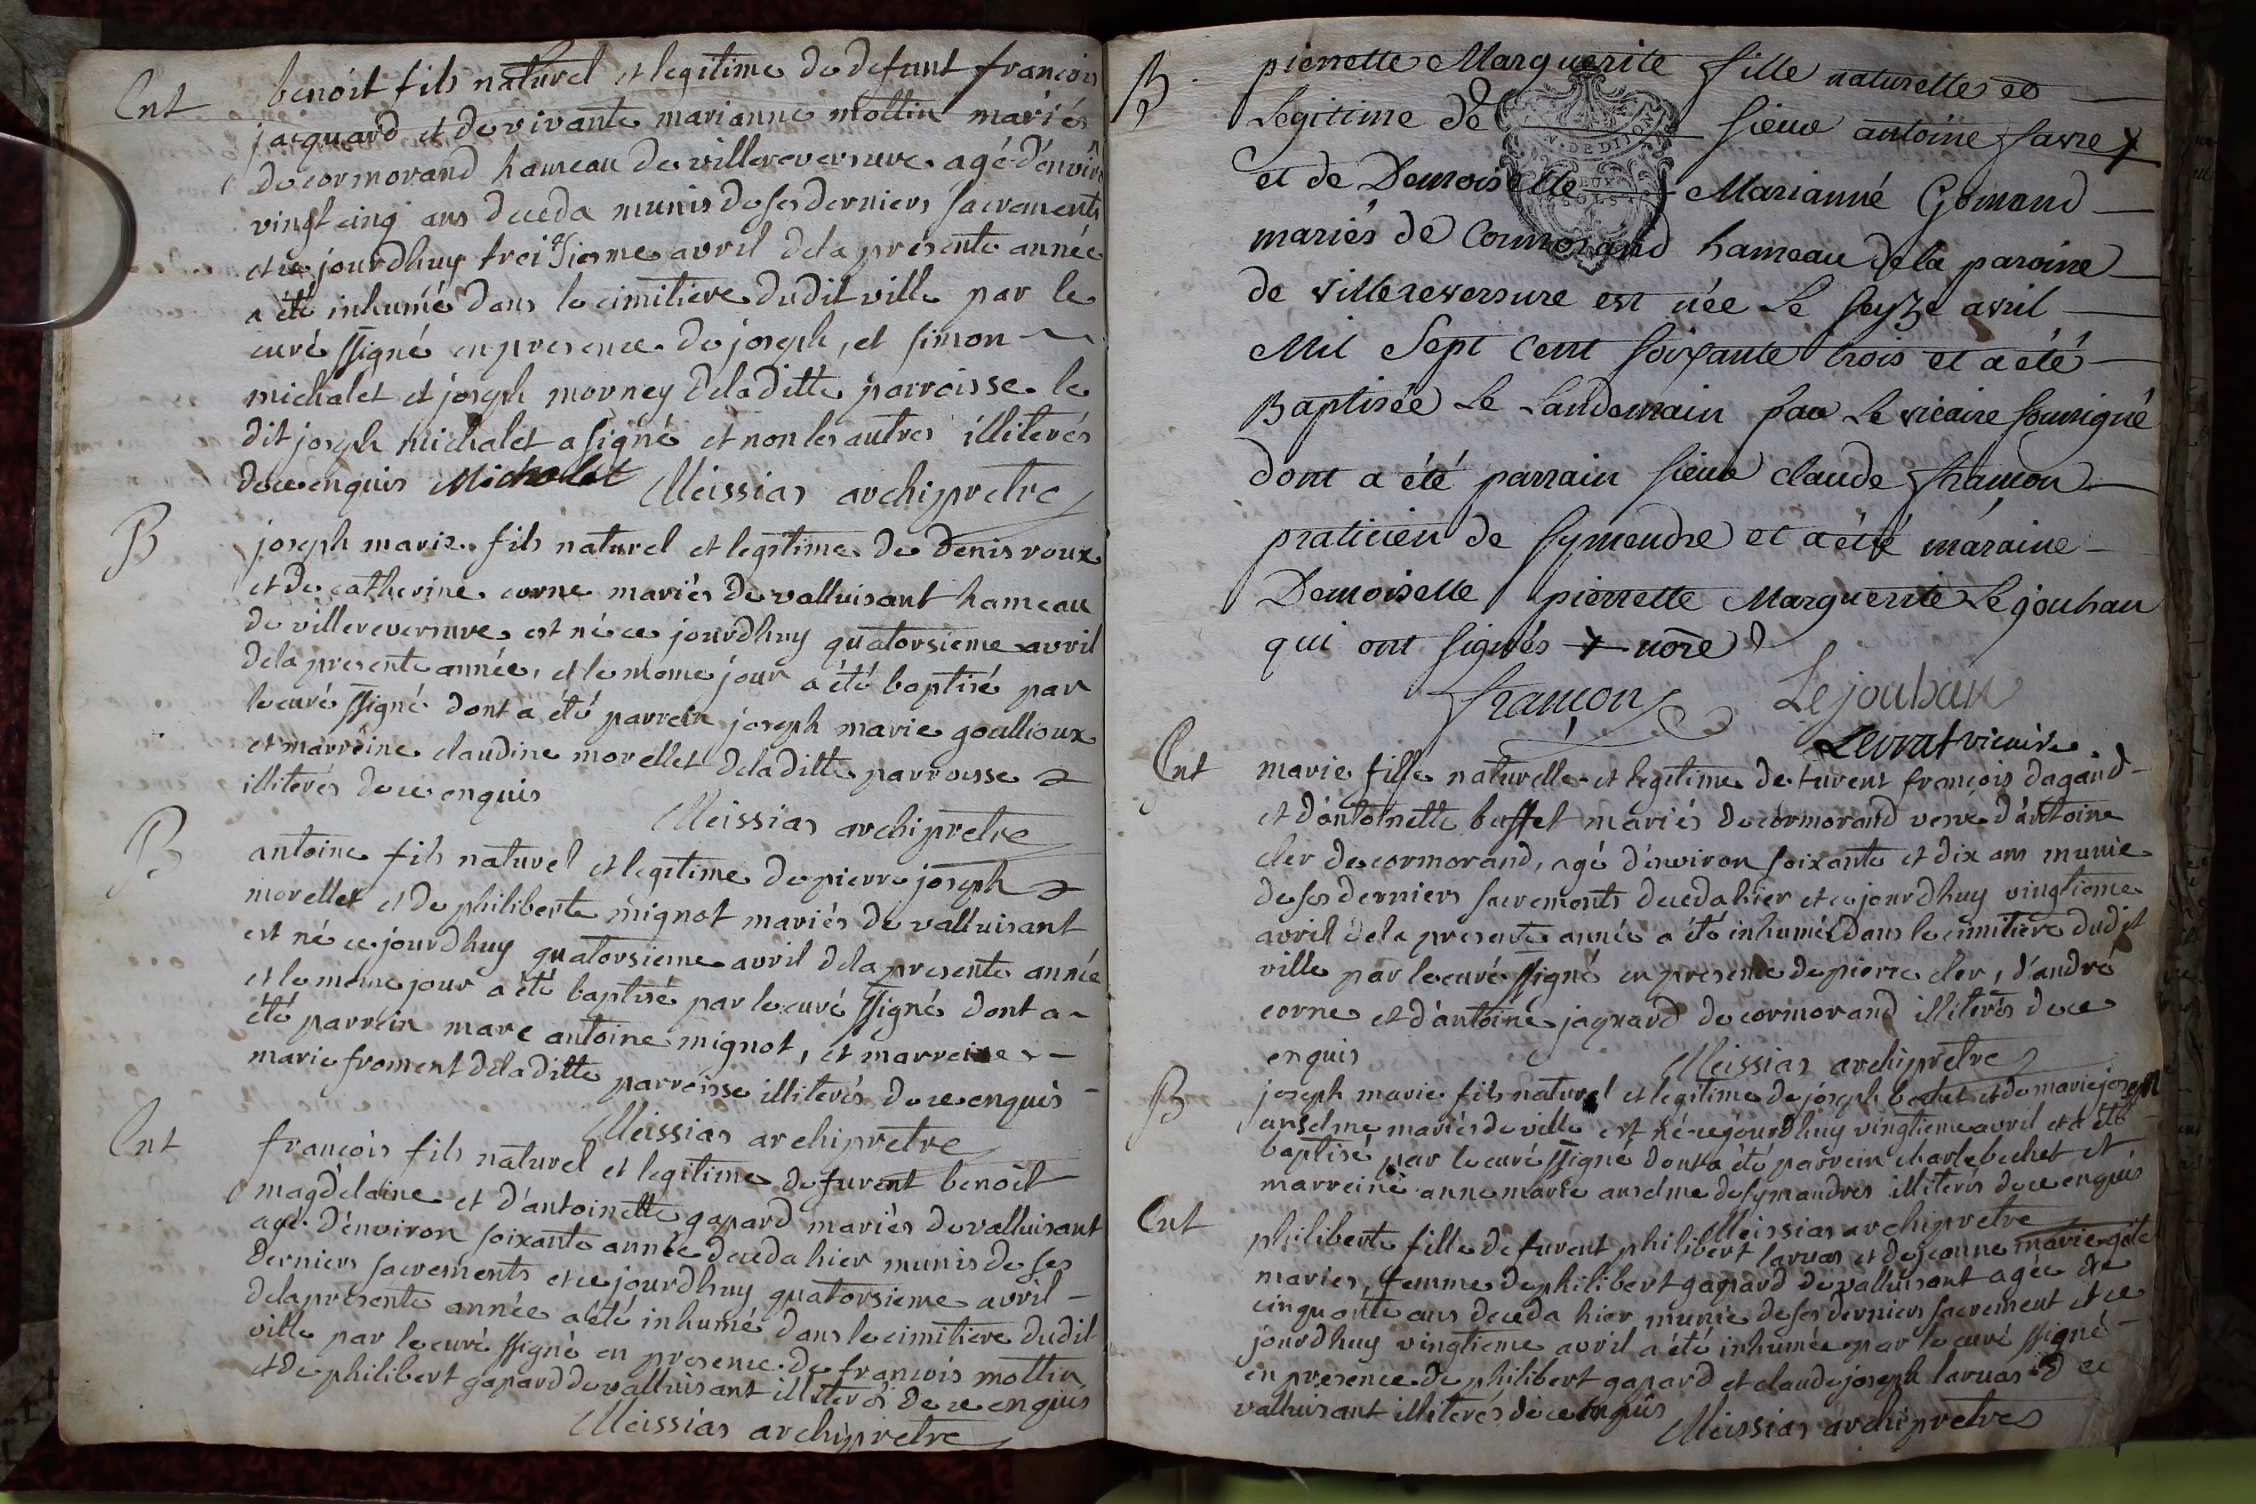 Ent
benoit fils naturel et legitime de defunt francois
jacquard et de vivante marianne mottin mariés
de cormorand hameau de villereversure agé d'environ
vingt cinq ans deceda munis de ses derniers sacrements
et ce jourdhuy treizieme avril dela présente année
a été inhumé dans le cimitiere dudit ville par le
curé ssigné en presence de joseph, et simon
michalet et joseph morney de la ditte parroisse le
dit joseph michalet a signé et non les autres illiterés
de ce enquis Michalet Meissias archipretre
B
joseph marie fils naturel et legitime de denis roux
et de catherine corne mariés de valluisant hameau
de villereversure est né ce jourdhuy quatorsieme avril
dela presente année, et le meme jour a été baptisé par
le curé ssigné dont a été parrein joseph marie goullioux
et marreine claudine morellet dela ditte parroisse
illiterés de ce enquis
Meissias archipretre
B
antoine fils naturel et legitime de pierre joseph
morellet et de philiberte mignot mariés de valluisant
est né ce jourdhuy quatorsieme avril dela presente année
et le meme jour a été baptisé par le curé ssigné dont a
été parrein marc antoine mignot, et marreine
marie froment dela ditte parroisse illiterés de ce enquis
Meissias archipretre
Ent
francois fils naturel et legitime de furent benoit
magdelaine et d'antoinette gapard mariés de valluisant
agé d'environ soixante année deceda hier munis de ses
derniers sacrements et ce jourdhuy quatorsieme avril
dela présente année a été inhumé dans le cimitiere dudit
ville par le curé ssigné en presence de francois mottin
et de philibert gapard de valluisant illiterés de ce enquis
Meissias archipretre
B
pierrette Marguerite fille naturelle et
Legitime de sieur antoine favre x
et de Demoiselle Marianne Gomand
mariés de Cormorand hameau de la paroisse
de Villereversure est née le seyze avril
Mil Sept Cent soixante trois et a été
Baptisée le Landemain par le vicaire soussigné
dont a été parrain sieur claude françon
praticien de symendre et a été maraine
Demoiselle pierrette Marguerite Lejouhan
qui ont signés x nore
françon Lejouhan
Levrat vicaire
Ent
marie fille naturelle et legitime de furent francois dagand
et d'antoinette buffet mariés de cormorand veuve d'antoine
cler de cormorand, agé d'environ soixante et dix ans munie
de ses derniers sacrements deceda hier et ce jourdhuy vingtieme
avril dela presente année a été inhumée dans le cimitiere dudit
ville par le curé ssigné en presence de pierre cler, d'andré
corne et d'antoine jaquard de cormorand illiterés de ce
enquis Meissias archipretre
B
joseph marie fils naturel et legitime de joseph et de marie joseph
anselme mariés de ville est né ce jourdhuy vingtieme avril et a été
baptisé par le curé ssigné dont a été parrein charle bechet et
marreine anne marie anselme de symandres illiterés de ce enquis
Meissias archipretre
Ent
philiberte fille de furent philibert laruas et de jeanne marie
mariés, femme de philibert gapard de valluisant agée de
cinquante ans deceda hier munie de ses derniers sacrement et ce
jourdhuy vingtieme avril a été inhumée par le curé ssigné
en presence de philibert gapard et claude joseph laruas de
valluisant illiterés de ce enquis
Meissias archipretre